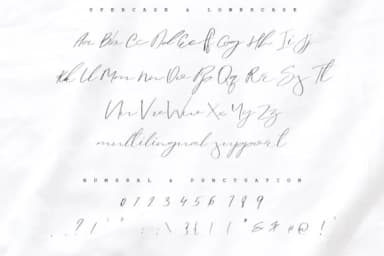 UPPERCASE & LOWERCASE
Aa Bb Cc Dd Ee Ff Gg Hh Ii Jj
Kk Ll Mm Nn Oo Pp Qq Rr Ss Tt
Uu Vv Ww Xx Yy Zz
multilingual support
NUMERAL & PUNCTUATION
0 1 2 3 4 5 6 7 8 9